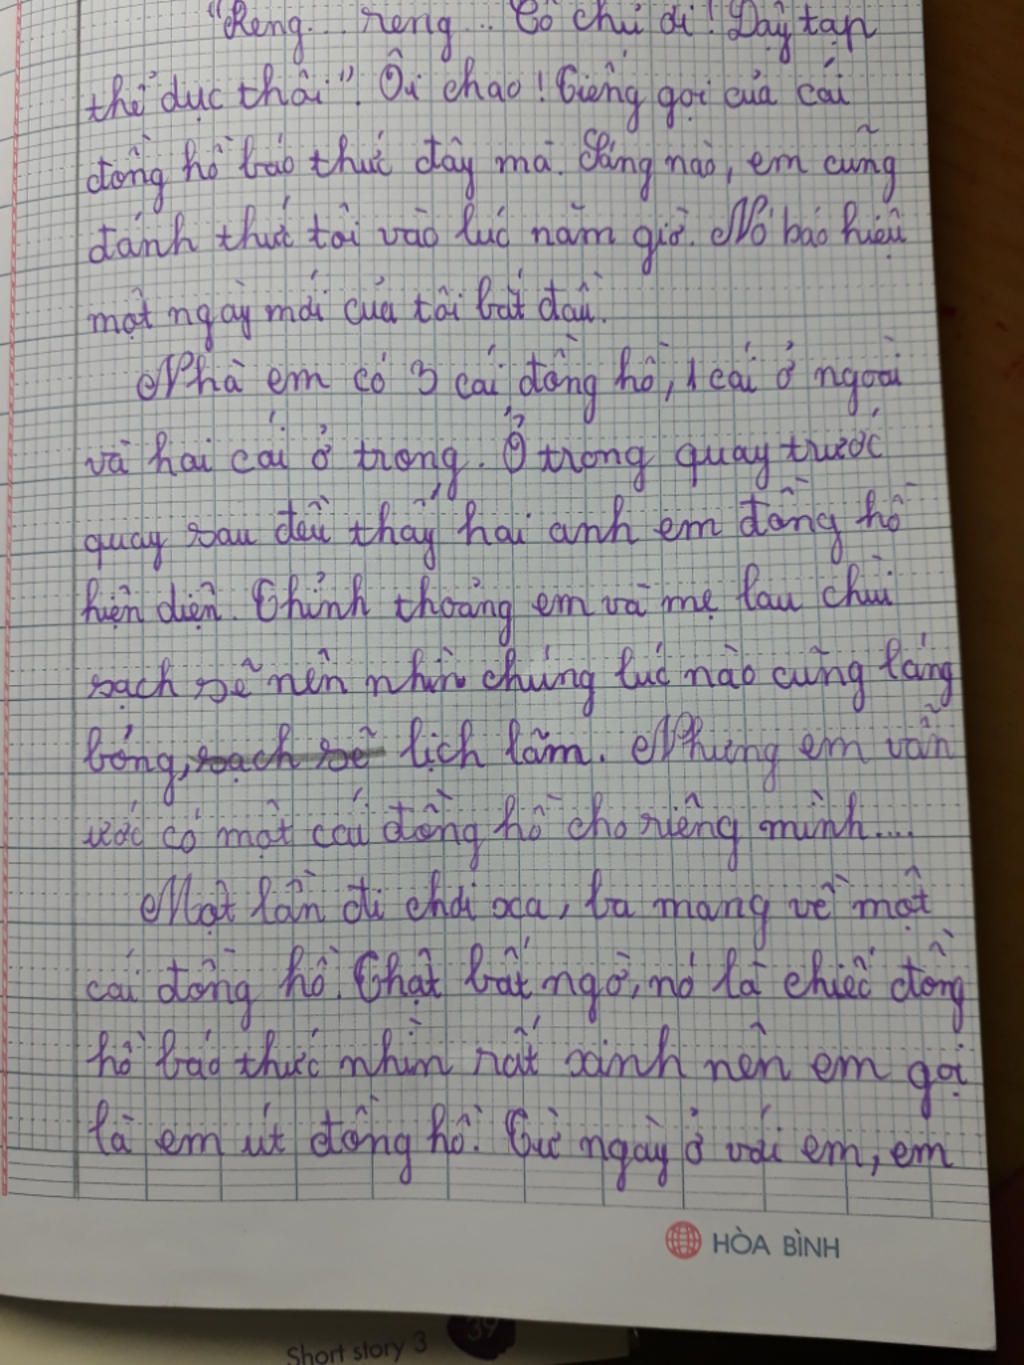 "Reng... reng... Cô chủ ơi! Dậy tập
thể dục thôi". Ôi chao! Tiếng gọi của cái
đồng hồ báo thức đấy mà. Sáng nào, em cũng
đánh thức tôi vào lúc năm giờ. Nó báo hiệu
một ngày mới của tôi bắt đầu.
Nhà em có 3 cái đồng hồ, 1 cái ở ngoài
và hai cái ở trong. Ở trong quay trước
quay sau đều thấy hai anh em đồng hồ
hiện diện. Thỉnh thoảng em và mẹ lau chùi
sạch sẽ nên nhìn chúng lúc nào cũng láng
bóng, lịch lãm. Nhưng em vẫn
ước có một cái đồng hồ cho riêng mình....
Một lần đi chơi xa, ba mang về một
cái đồng hồ. Thật bất ngờ, nó là chiếc đồng
hồ báo thức nhìn rất xinh nên em gọi
là em út đồng hồ. Từ ngày ở với em, em
HÒA BÌNH
Short story 3
39